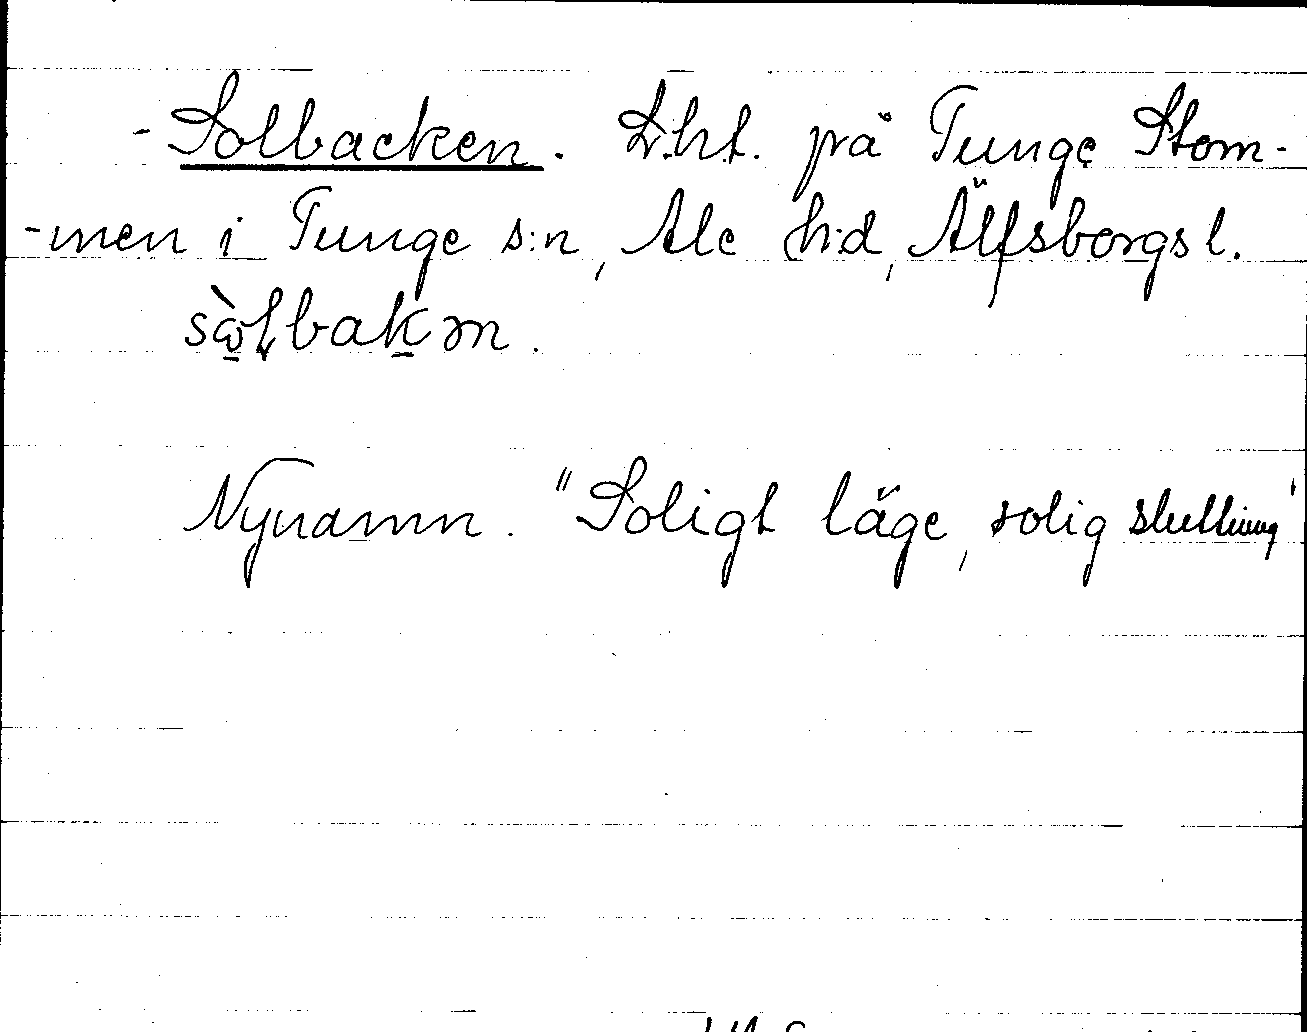 - Solbacken. Lht. på Tunge Stom-
-men i Tunge s:n, Ale h:d, Älfsborgs l.
Nynamn. "Soligt läge, solig sluttning"